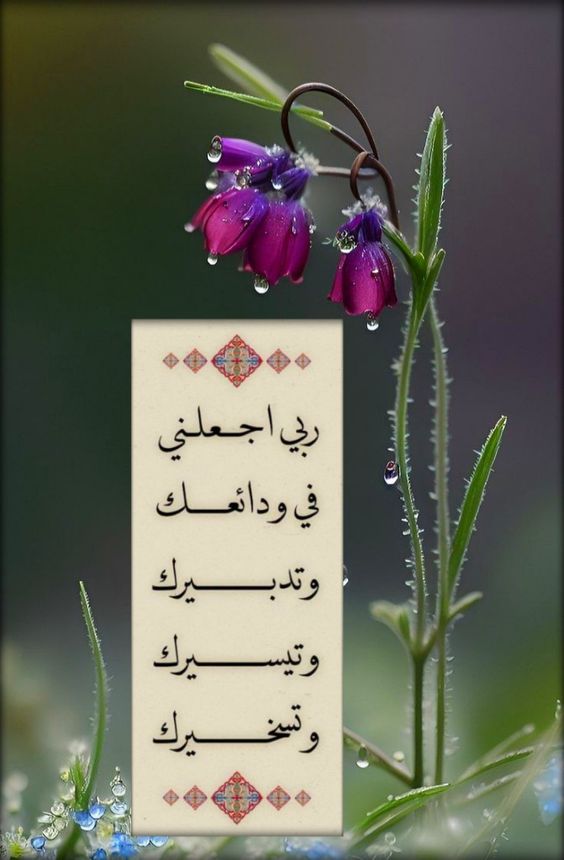 ربي اجعلني
في ودائعك
وتدبيرك
وتيسيرك
وتسخيرك